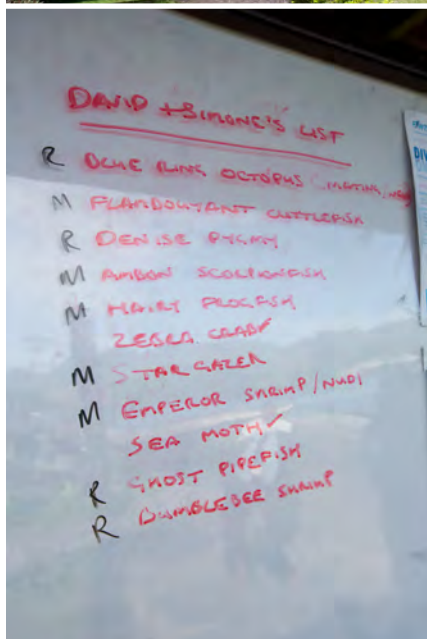 DAVID + SIMONE'S LIST
R BLUE RING OCTOPUS (MATING/
M FLAMBOUYANT CUTTLEFISH
R DENISE PYGMY
M AMBON SCORPIONFISH
M HAIRY FROGFISH
ZEBRA CRAB ✓
M STARGAZER
M EMPEROR SHRIMP/NUDI
SEA MOTH ✓
R GHOST PIPEFISH
R BUMBLEBEE SHRIMP
DIV